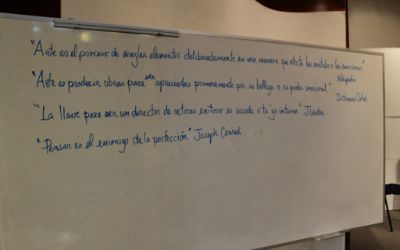 "Arte es el proceso de arreglar elementos deliberadamente en una manera que afecte los sentidos o las emociones"
Wikipedia
"Arte es producir obras para ser apreciadas primeramente por su belleza o su poder emocional"
Dictionary Oxford
"La llave para ser un director de actores exitoso es accede a tu 'yo interno'"
"Pensar es el enemigo de la perfección" Joseph Conrad